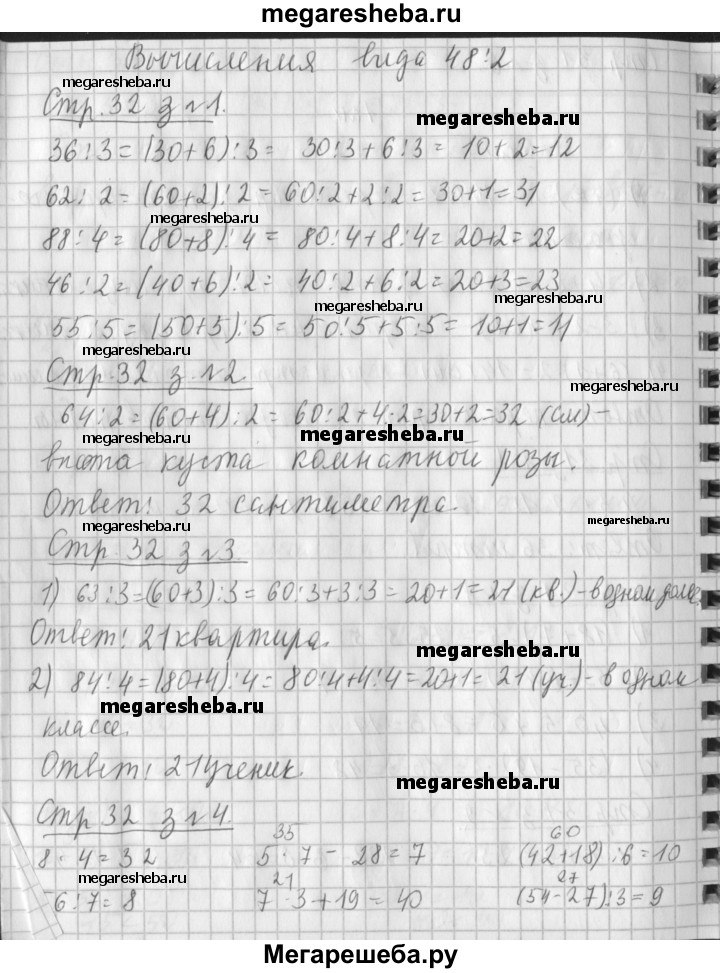 megaresheba.ru
Вычисления вида 48:2
megaresheba.ru
Стр. 32 з №1.
megaresheba.ru
36:3=(30+6):3= 30:3+6:3= 10+2=12
62:2=(60+2):2=60:2+2:2=30+1=31
megaresheba.ru
88:4=(80+8):4= 80:4+8:4=20+2=22
46:2=(40+6):2= 40:2+6:2=20+3=23
megaresheba.ru megaresheba.ru
55:5=(50+5):5=50:5+5:5=10+1=11
megaresheba.ru
Стр. 32 з. №2
megaresheba.ru
64:2=(60+4):2=60:2+4:2=30+2=32 (см)-
megaresheba.ru megaresheba.ru
высота куста комнатной розы.
Ответ: 32 сантиметра.
megaresheba.ru megaresheba.ru
Стр. 32 з №3.
1) 63:3=(60+3):3=60:3+3:3=20+1=21 (кв.)-в одном доме.
Ответ: 21 квартира.
megaresheba.ru
2) 84:4=(80+4):4=80:4+4:4=20+1=21 (уч.)-в одном
megaresheba.ru
классе.
Ответ: 21 ученик.
megaresheba.ru
Стр 32 з №4.
35 60
8·4=32 5·7-28=7 (42+18):6=10
megaresheba.ru 21 27
6:7=8 7·3+19=40 (54-27):3=9
Мегарешеба.ру